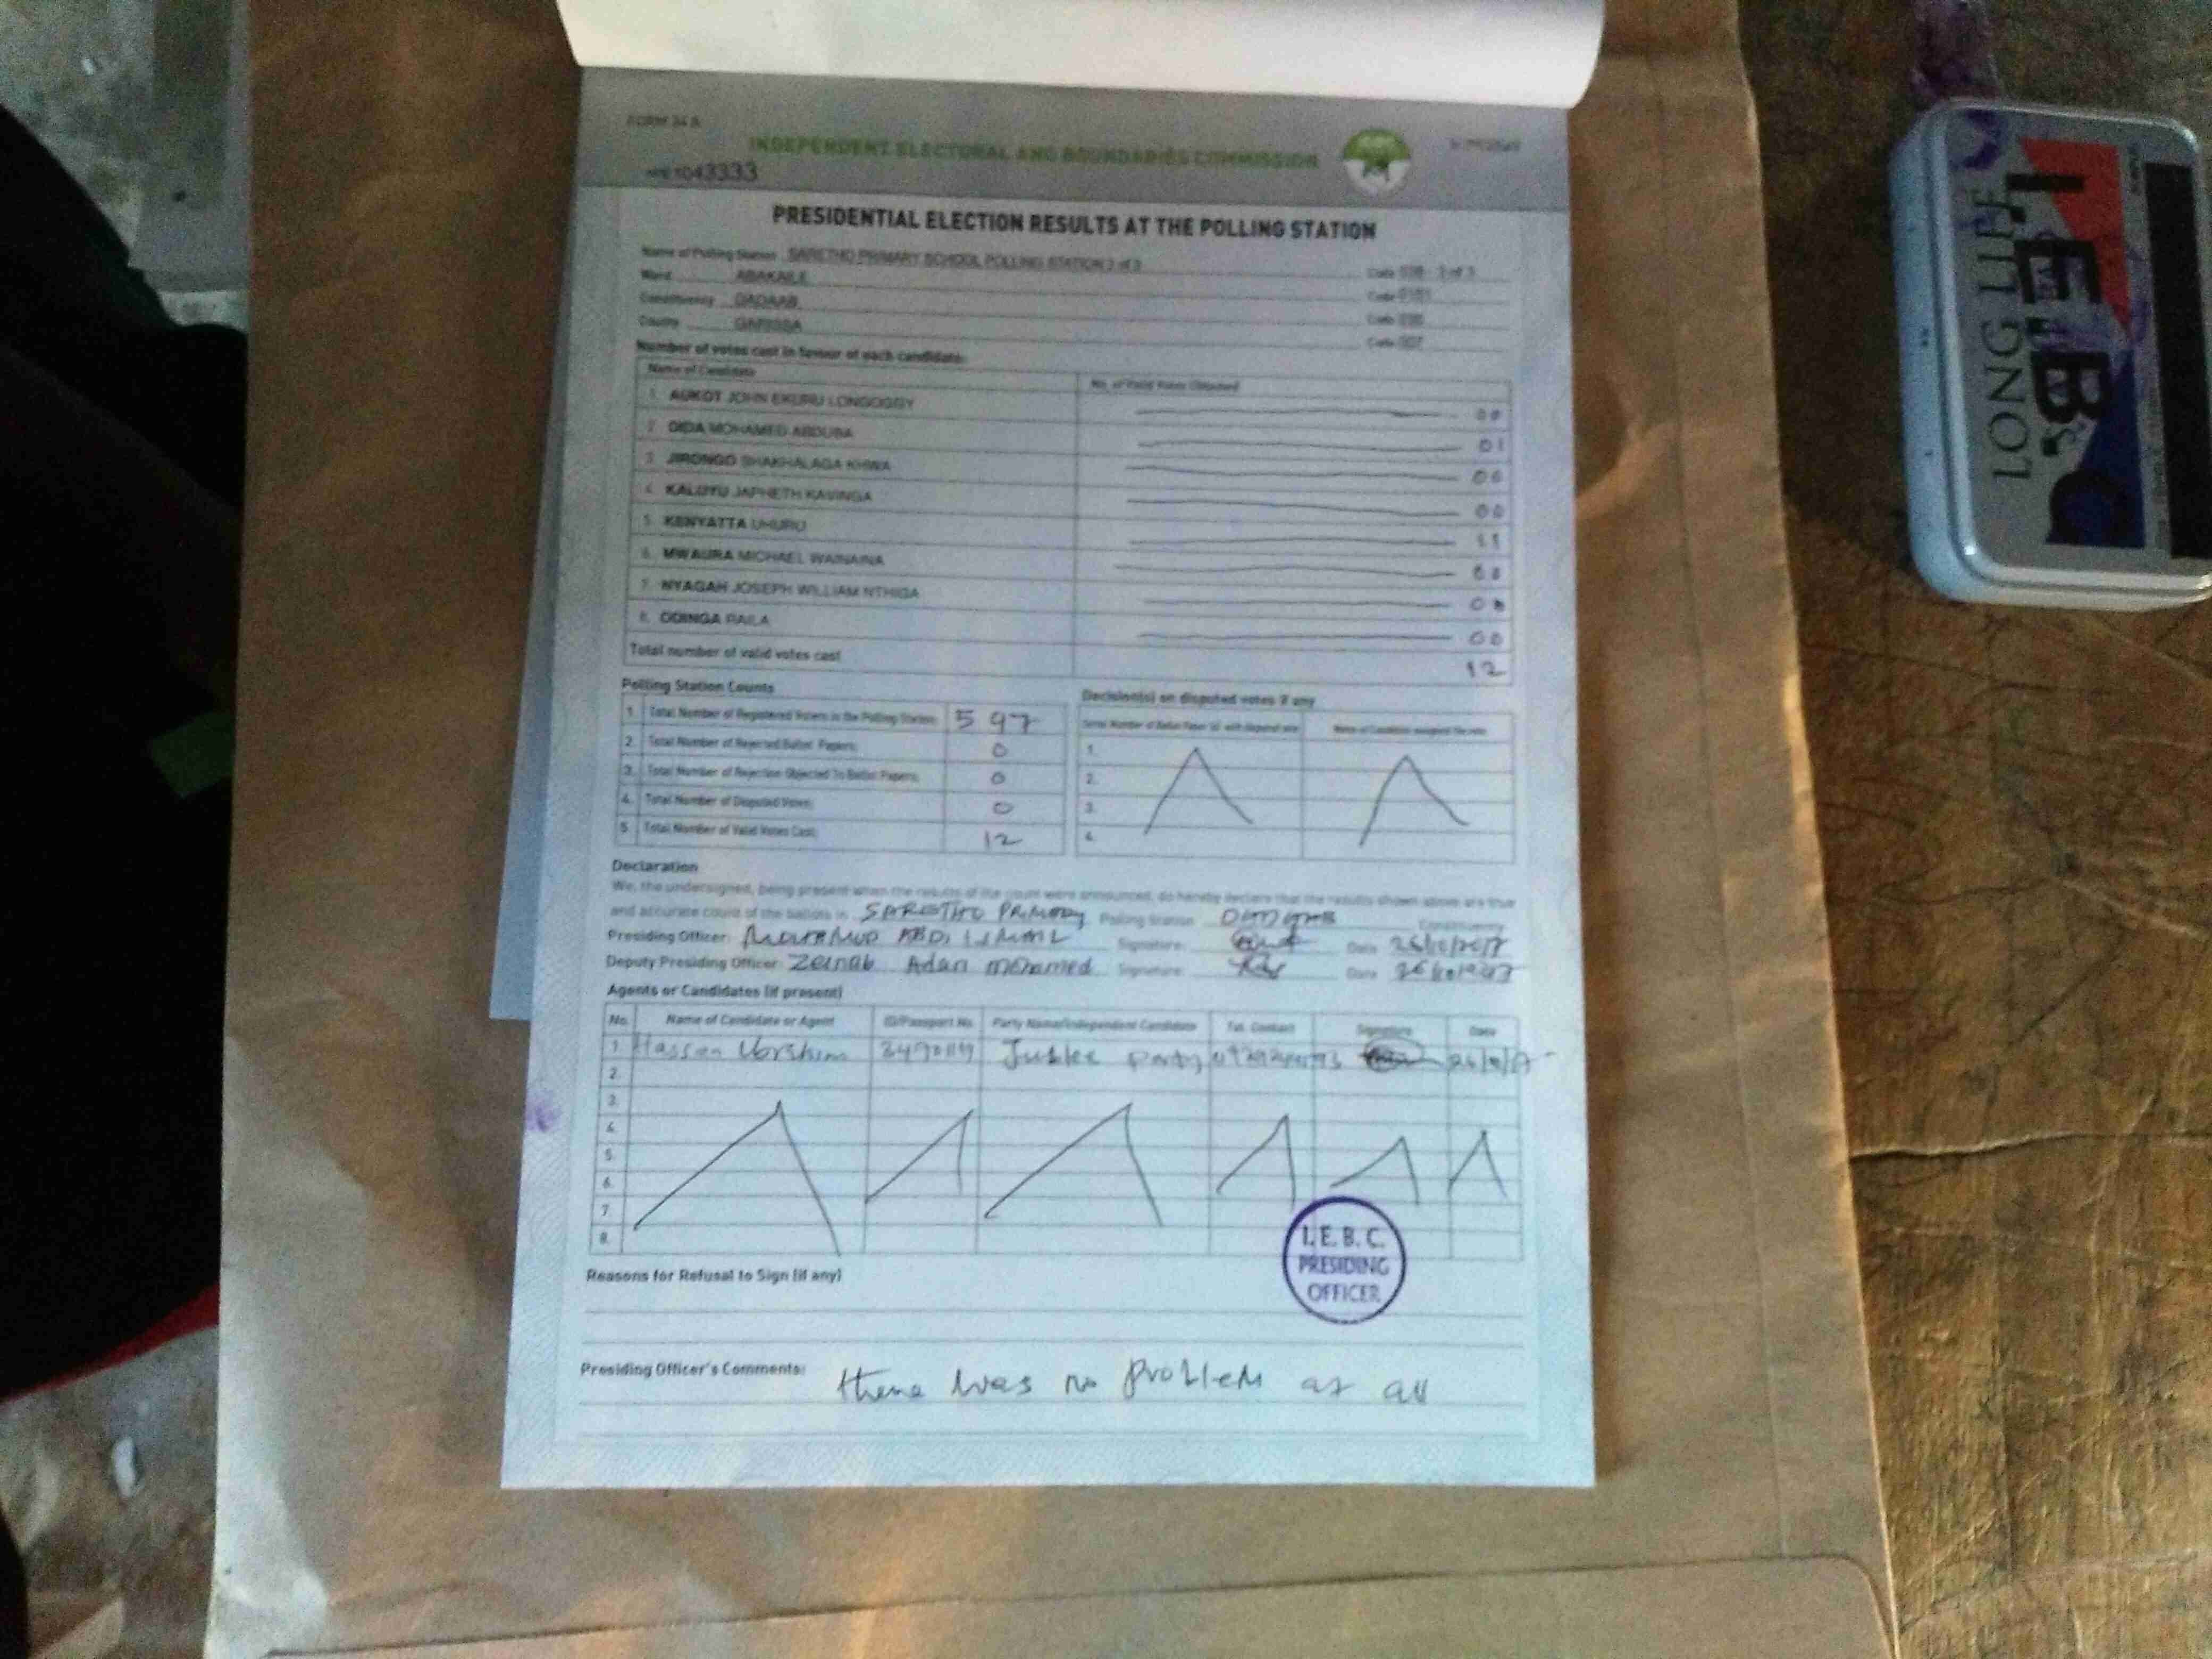 FORM 34 A
INDEPENDENT ELECTORAL AND BOUNDARIES COMMISSION
043333
PRESIDENTIAL ELECTION RESULTS AT THE POLLING STATION
Name of Polling Station SARETHO PRIMARY SCHOOL POLLING STATION 2 of 3
Ward ABAKAILE
Constituency DADAAB
County GARISSA
Number of votes cast in favour of each candidate:
Name of Candidate No. of Valid Votes Obtained
1. AUKOT JOHN EKURU LONGOGGY 00
2. DIDA MOHAMED ABDUBA 01
3. JIRONGO SHAKHALAGA KHWA 00
4. KALUYU JAPHETH KAVINGA 00
5. KENYATTA UHURU 11
6. MWAURA MICHAEL WAINAINA 00
7. NYAGAH JOSEPH WILLIAM NTHIGA 00
8. ODINGA RAILA 00
Total number of valid votes cast 12
Polling Station Counts
1. Total Number of Registered Voters in the Polling Station 597
2. Total Number of Rejected Ballot Papers 0
3. Total Number of Rejection Objected To Ballot Papers 0
4. Total Number of Disputed Votes 0
5. Total Number of Valid Votes Cast 12
Decision(s) on disputed votes if any
1.
2.
3.
4.
Declaration
We, the undersigned, being present when the results of the count were announced, do hereby declare that the results shown above are true
and accurate count of the ballots in SARETHO PRIMARY Polling Station Constituency
Presiding Officer: ABDI Signature: Date 26/10/2017
Deputy Presiding Officer: Zeinab Adan mohamed Signature: Date 26/10/2017
Agents or Candidates (if present)
No. Name of Candidate or Agent ID/Passport No. Party Name/Independent Candidate Tel. Contact Signature Date
1. Hassan Jublee Party
2.
3.
4.
5.
6.
7.
8.
I.E.B.C.
PRESIDING
OFFICER
Reasons for Refusal to Sign (if any)
Presiding Officer's Comments: there was no problem at all
LONG LIFE
I.E.B.C